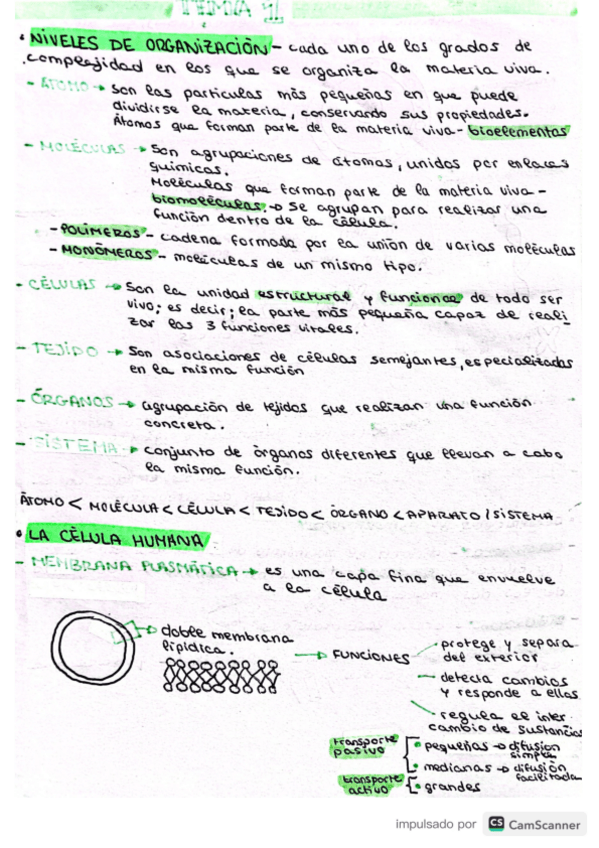 TEMA 1
• NIVELES DE ORGANIZACIÓN - cada uno de los grados de
complejidad en los que se organiza la materia viva.
- ÁTOMO → Son las partículas más pequeñas en que puede
dividirse la materia, conservando sus propiedades.
Átomos que forman parte de la materia viva - bioelementos
- MOLÉCULAS → Son agrupaciones de átomos, unidos por enlaces
químicos.
Moléculas que forman parte de la materia viva -
biomoléculas. → Se agrupan para realizar una
función dentro de la célula.
- POLÍMEROS - cadena formada por la unión de varias moléculas
- MONÓMEROS - moléculas de un mismo tipo.
- CÉLULAS → Son la unidad estructural y funcional de todo ser
vivo; es decir; la parte más pequeña capaz de reali
zar las 3 funciones vitales.
- TEJIDO → Son asociaciones de células semejantes, especializadas
en la misma función
- ÓRGANOS → agrupación de tejidos que realizan una función
concreta.
- SISTEMA → conjunto de órganos diferentes que llevan a cabo
la misma función.
ÁTOMO < MOLÉCULA < CÉLULA < TEJIDO < ÓRGANO < APARATO / SISTEMA
• LA CÉLULA HUMANA
- MEMBRANA PLASMÁTICA → es una capa fina que envuelve
a la célula
doble membrana
lipídica.
→ FUNCIONES
protege y separa
del exterior
detecta cambios
y responde a ellos
regula el inter
cambio de sustancias
transporte
pasivo
• pequeñas → difusion
simple
• medianas → difusión
facilitada
transporte
activo
• grandes
impulsado por CS CamScanner